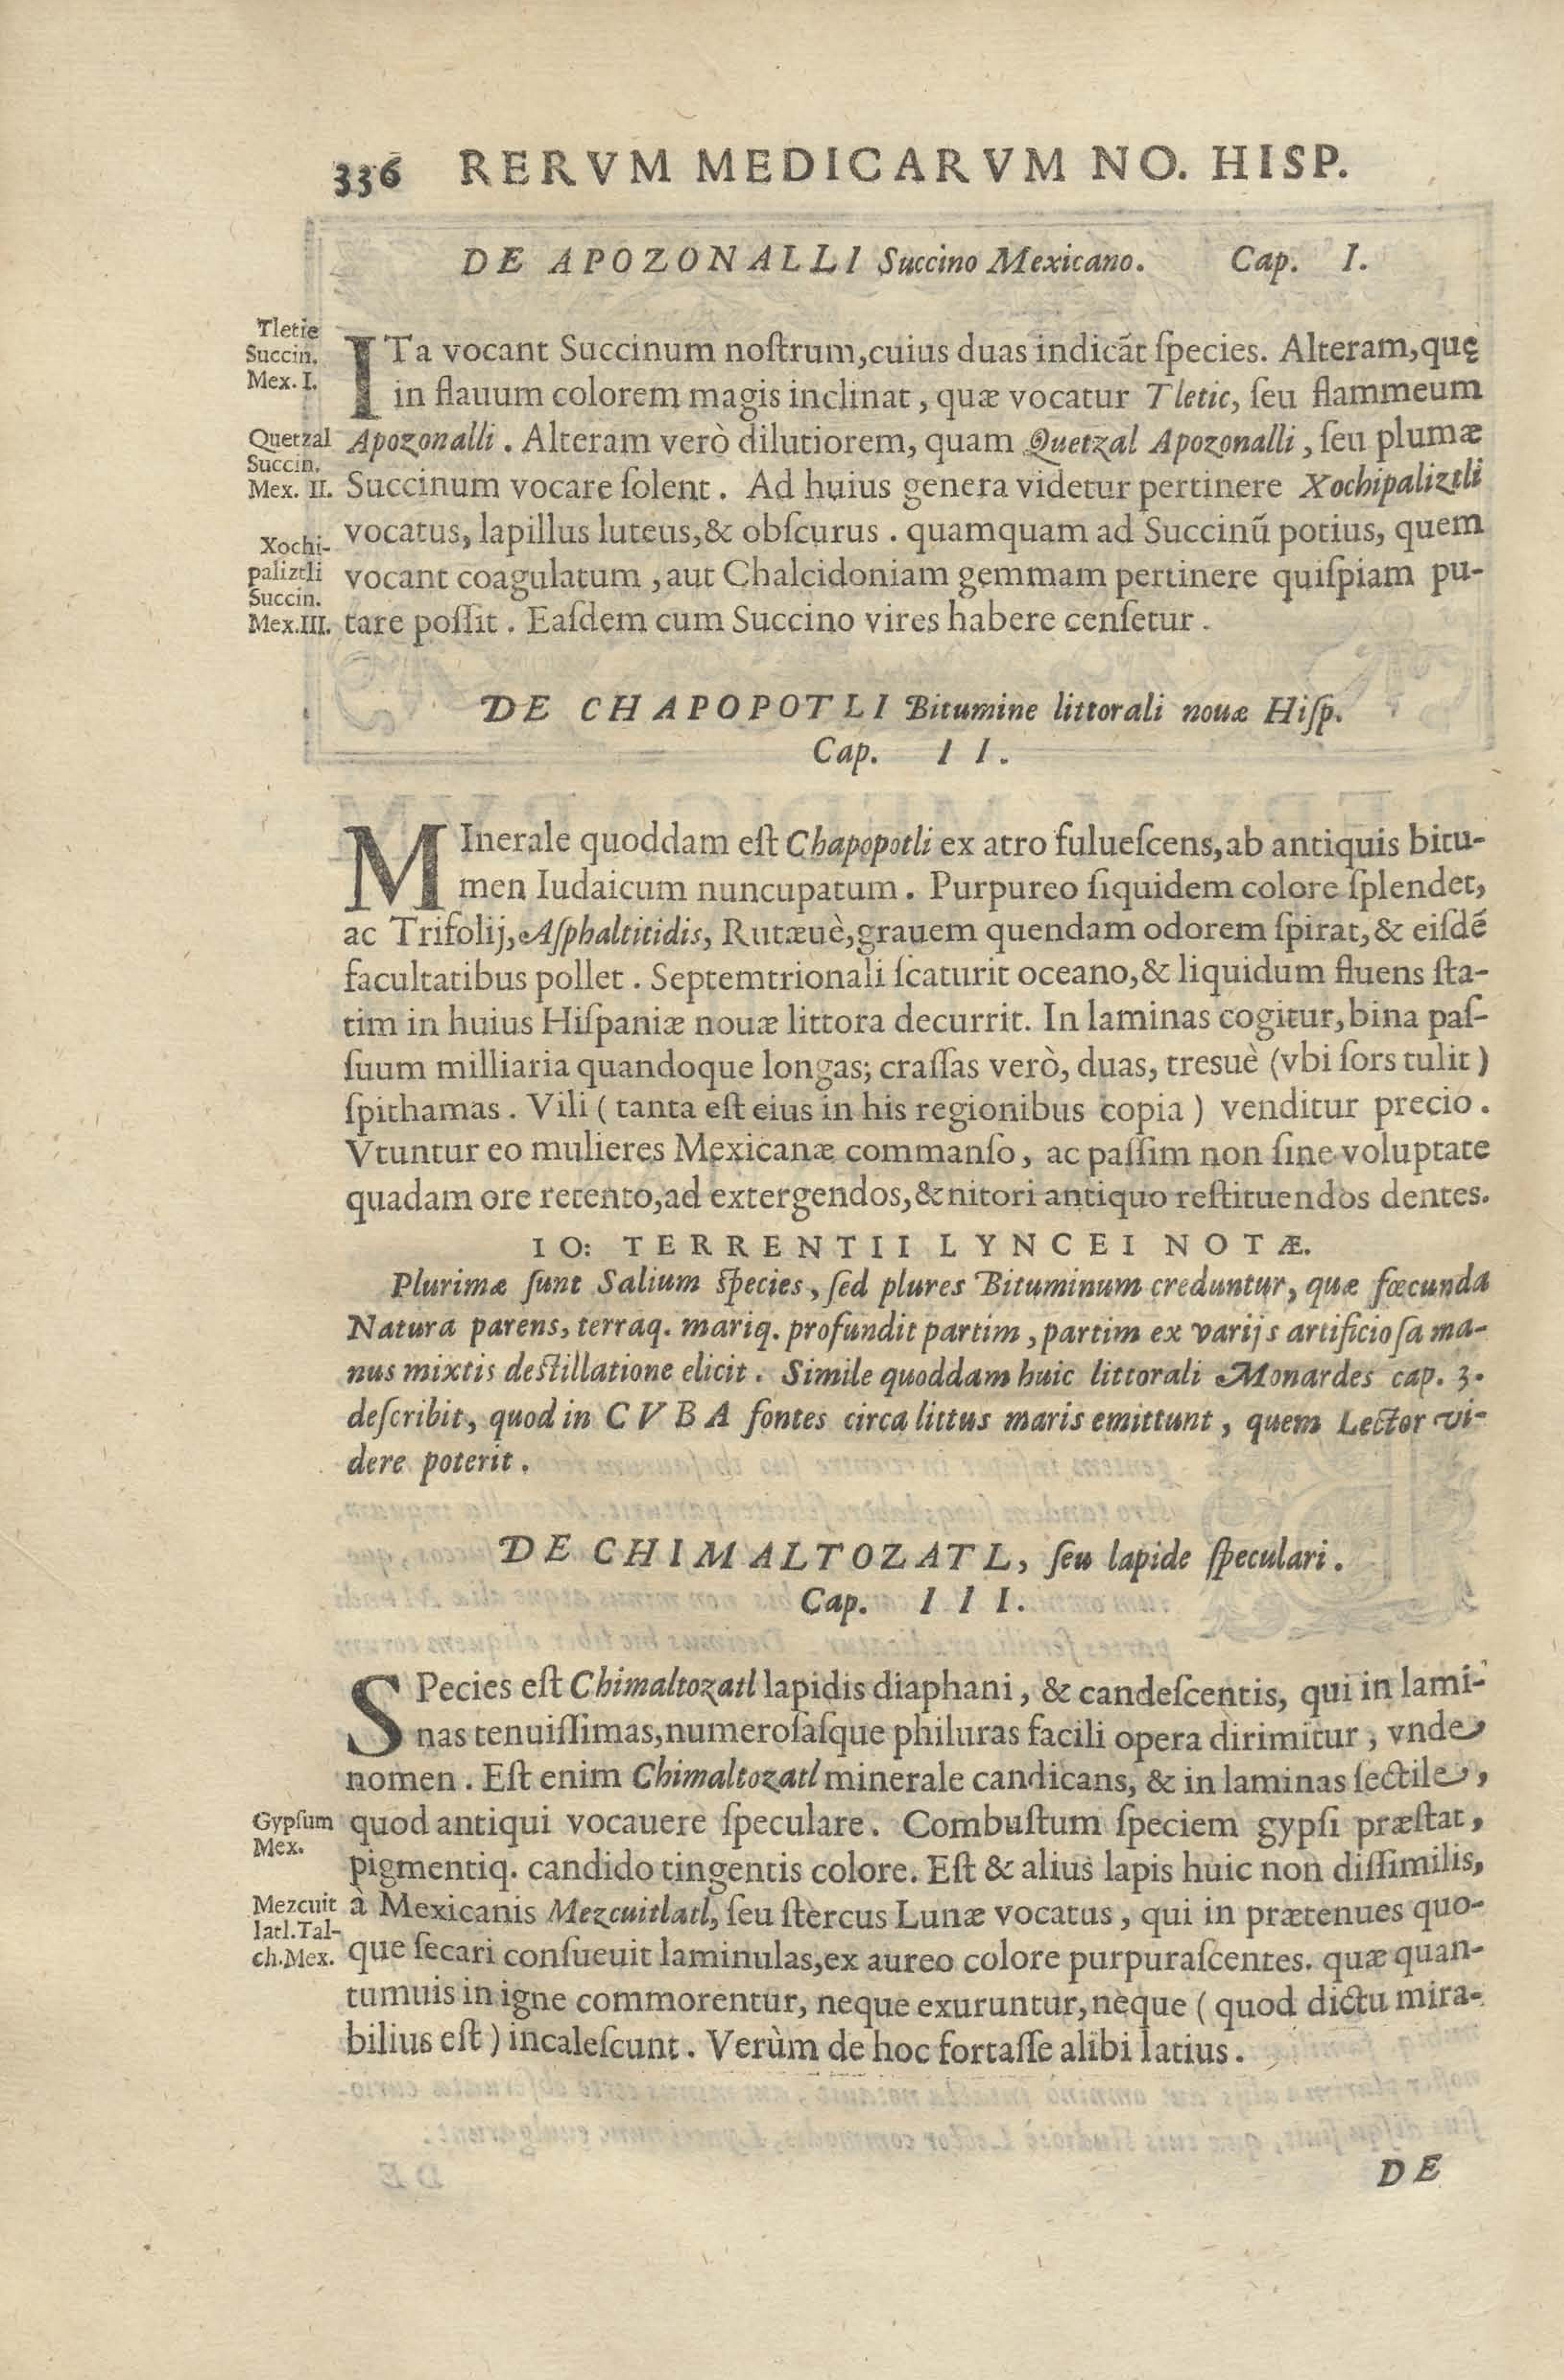 336 RERVM MEDICARVM NO. HISP.
DE APOZONALLI Succino Mexicano. Cap. I.
Tletic
Succin.
Mex. I.
ITa vocant Succinum noſtrum, cuius duas indicãt ſpecies. Alteram, quę
in flauum colorem magis inclinat, quæ vocatur Tletic, ſeu flammeum
Quetzal
Succin.
Mex. II.
Apozonalli. Alteram verò dilutiorem, quam Quetzal Apozonalli, ſeu plumæ
Succinum vocare ſolent. Ad huius genera videtur pertinere Xochipaliztli
Xochi-
paliztli
Succin.
Mex.III.
vocatus, lapillus luteus, & obſcurus. quamquam ad Succinũ potius, quem
vocant coagulatum, aut Chalcidoniam gemmam pertinere quiſpiam pu-
tare poſſit. Eaſdem cum Succino vires habere cenſetur.
DE CHAPOPOTLI Bitumine littorali nouæ Hiſp.
Cap. II.
MInerale quoddam eſt Chapopotli ex atro fulueſcens, ab antiquis bitu-
men Iudaicum nuncupatum. Purpureo ſiquidem colore ſplendet,
ac Trifolij, Aſphaltitidis, Rutæuè, grauem quendam odorem ſpirat, & eiſdẽ
facultatibus pollet. Septemtrionali ſcaturit oceano, & liquidum fluens ſta-
tim in huius Hiſpaniæ nouæ littora decurrit. In laminas cogitur, bina paſ-
ſuum milliaria quandoque longas; craſſas verò, duas, tresuè (vbi ſors tulit)
ſpithamas. Vili (tanta eſt eius in his regionibus copia) venditur precio.
Vtuntur eo mulieres Mexicanæ commanſo, ac paſſim non ſine voluptate
quadam ore retento, ad extergendos, & nitori antiquo reſtituendos dentes.
IO: TERRENTII LYNCEI NOTÆ.
Plurimæ ſunt Salium ſpecies, ſed plures Bituminum creduntur, quæ fœcunda
Natura parens, terraq. mariq. profundit partim, partim ex varijs artificioſa ma-
nus mixtis deſtillatione elicit. Simile quoddam huic littorali Monardes cap. 3.
deſcribit, quod in CVBA fontes circa littus maris emittunt, quem Lector vi-
dere poterit.
DE CHIMALTOZATL, ſeu lapide ſpeculari.
Cap. III.
SPecies eſt Chimaltozatl lapidis diaphani, & candeſcentis, qui in lami-
nas tenuiſſimas, numeroſaſque philuras facili opera dirimitur, vnde
nomen. Eſt enim Chimaltozatl minerale candicans, & in laminas ſectile,
Gypſum
Mex.
quod antiqui vocauere ſpeculare. Combuſtum ſpeciem gypſi præſtat,
pigmentiq. candido tingentis colore. Eſt & alius lapis huic non diſſimilis,
Mezcuit
latl. Tal-
ch. Mex.
à Mexicanis Mezcuitlatl, ſeu ſtercus Lunæ vocatus, qui in prætenues quo-
que ſecari conſueuit laminulas, ex aureo colore purpuraſcentes. quæ quan-
tumuis in igne commorentur, neque exuruntur, neque (quod dictu mira-
bilius eſt) incaleſcunt. Verùm de hoc fortaſſe alibi latius.
DE